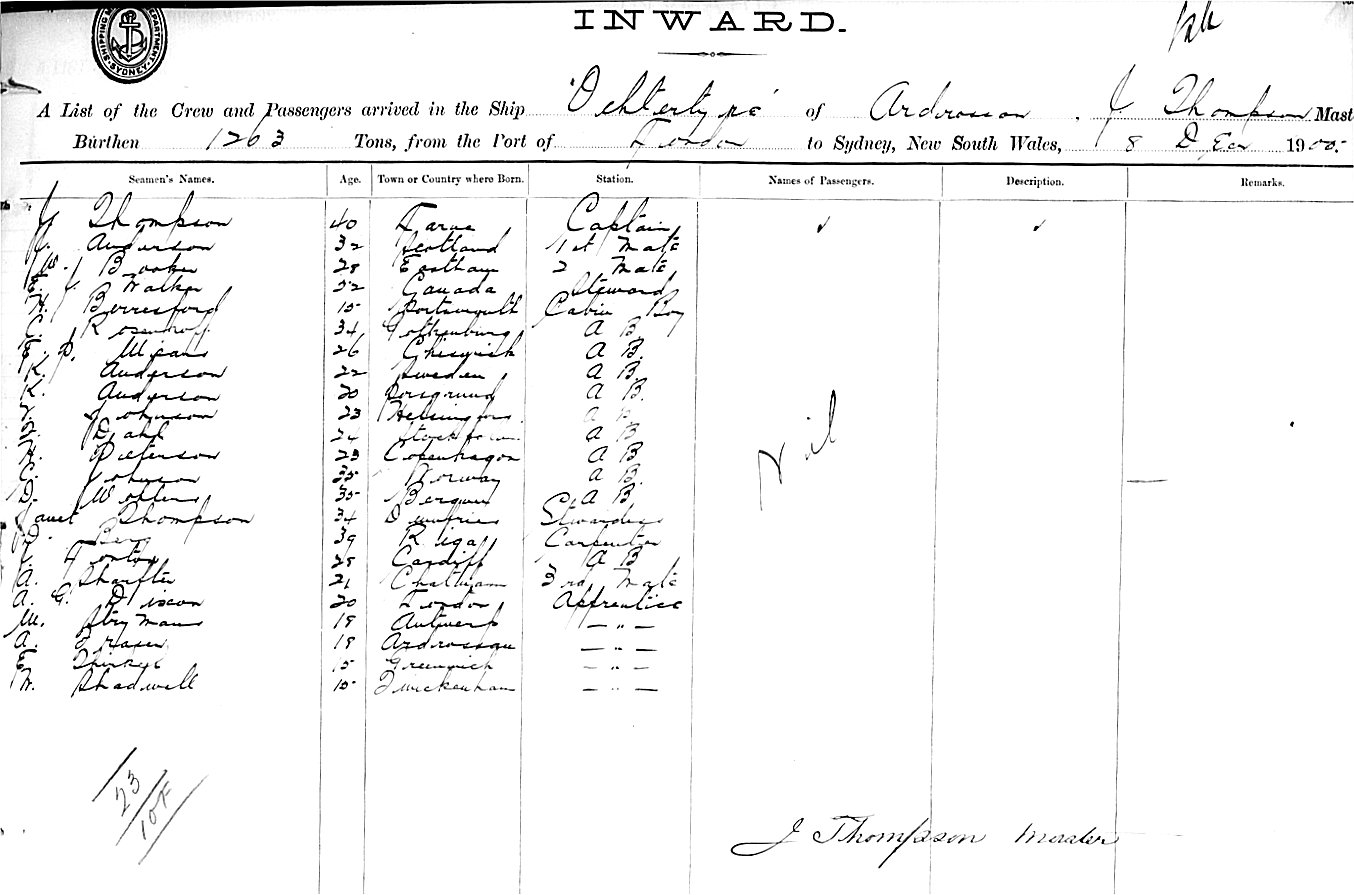 SHIPPING DEPARTMENT SYDNEY
INWARD.
A List of the Crew and Passengers arrived in the Ship of Ardrossan. J Thompson Mast
Burthen 1263 Tons, from the Port of London to Sydney, New South Wales, 8 Dec 1900.
Seamen's Names. Age. Town or Country where Born. Station. Names of Passengers. Description. Remarks.
J Thompson 40 Captain
J. Anderson 32 Scotland 1st Mate
W. J. Booker 28 Eastham 2 Mate
Walker 52 Canada Steward
H. Berresford 15 Cabin Boy
C. 34 Gothenburg A B
E. P. 26 Chiswick A B.
K. Anderson 22 Sweden A B.
K. Anderson 20 Porsgrund A B.
Johnson 23 Helsingfors. A B.
Dahl 24 A B
H. Pieterson 23 Copenhagon A B.
C. Johnson 35 Norway A B.
D. 35 Bergen A B
Janet Thompson 34 Dumfries Stewardess
Berg 39 Riga Carpenter
29 Cardiff A B
A. 21 Chatham 3rd Mate
A. G. Dixon 20 London Apprentice
M. 19 Antwerp — " —
A. Fraser 19 Ardrossan — " —
E. 15 Greenwich — " —
W. Shadwell 15 Twickenham — " —
Nil
23
J Thompson Master